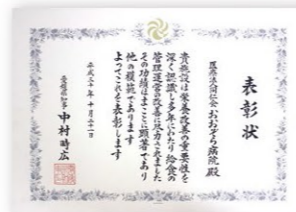 表彰状
医療法人同仁会 おおぞら病院 殿
貴施設は栄養改善の重要性を
深く認識し多年にわたり給食の
管理運営の改善に尽力されました
その功績はまことに顕著であり
他の模範であります
よってこれを表彰します
平成三十年十月二十一日
愛媛県知事 中村時広